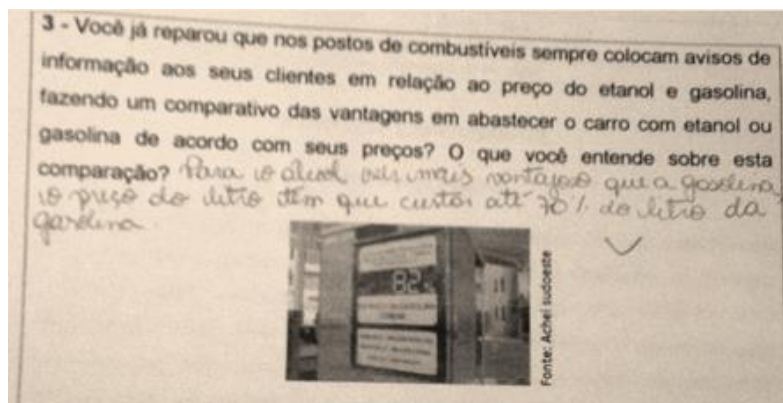 3 - Você já reparou que nos postos de combustíveis sempre colocam avisos de
informação aos seus clientes em relação ao preço do etanol e gasolina,
fazendo um comparativo das vantagens em abastecer o carro com etanol ou
gasolina de acordo com seus preços? O que você entende sobre esta
comparação? Para o álcool mais vantajoso que a gasolina
o preço do litro tem que custar até 70% do litro da
gasolina
82
Fonte: Achei sudoeste